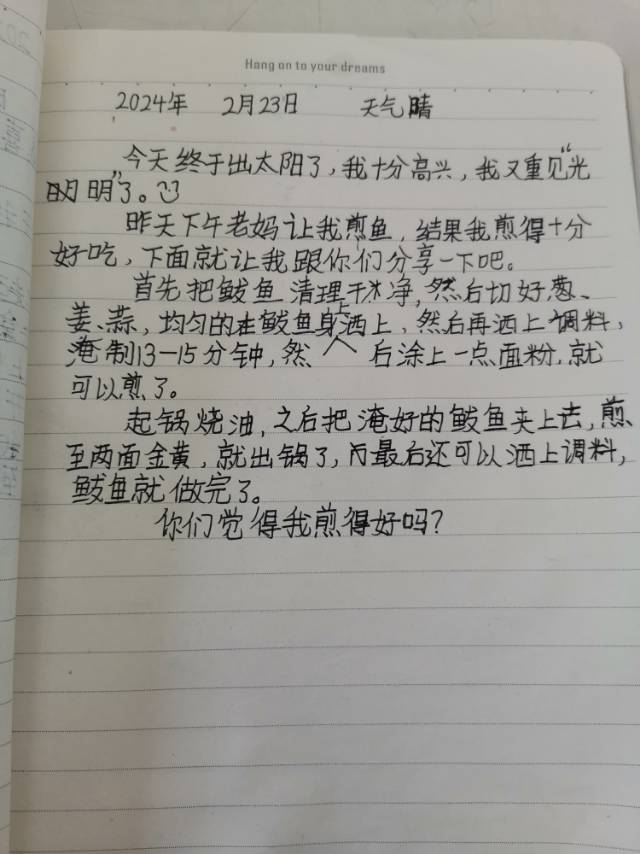 Hang on to your dreams
2024年 2月23日 天气晴
今天终于出太阳了，我十分高兴，我又重见“光
明明”了。
昨天下午老妈让我煎鱼，结果我煎得十分
好吃，下面就让我跟你们分享一下吧。
首先把鲅鱼清理干净，然后切好葱、
姜、蒜，均匀的在鲅鱼身上洒上，然后再洒上调料，
淹制13-15分钟，然后涂上一点面粉，就
可以煎了。
起锅烧油，之后把淹好的鲅鱼夹上去，煎
至两面金黄，就出锅了，最后还可以洒上调料，
鲅鱼就做完了。
你们觉得我煎得好吗？